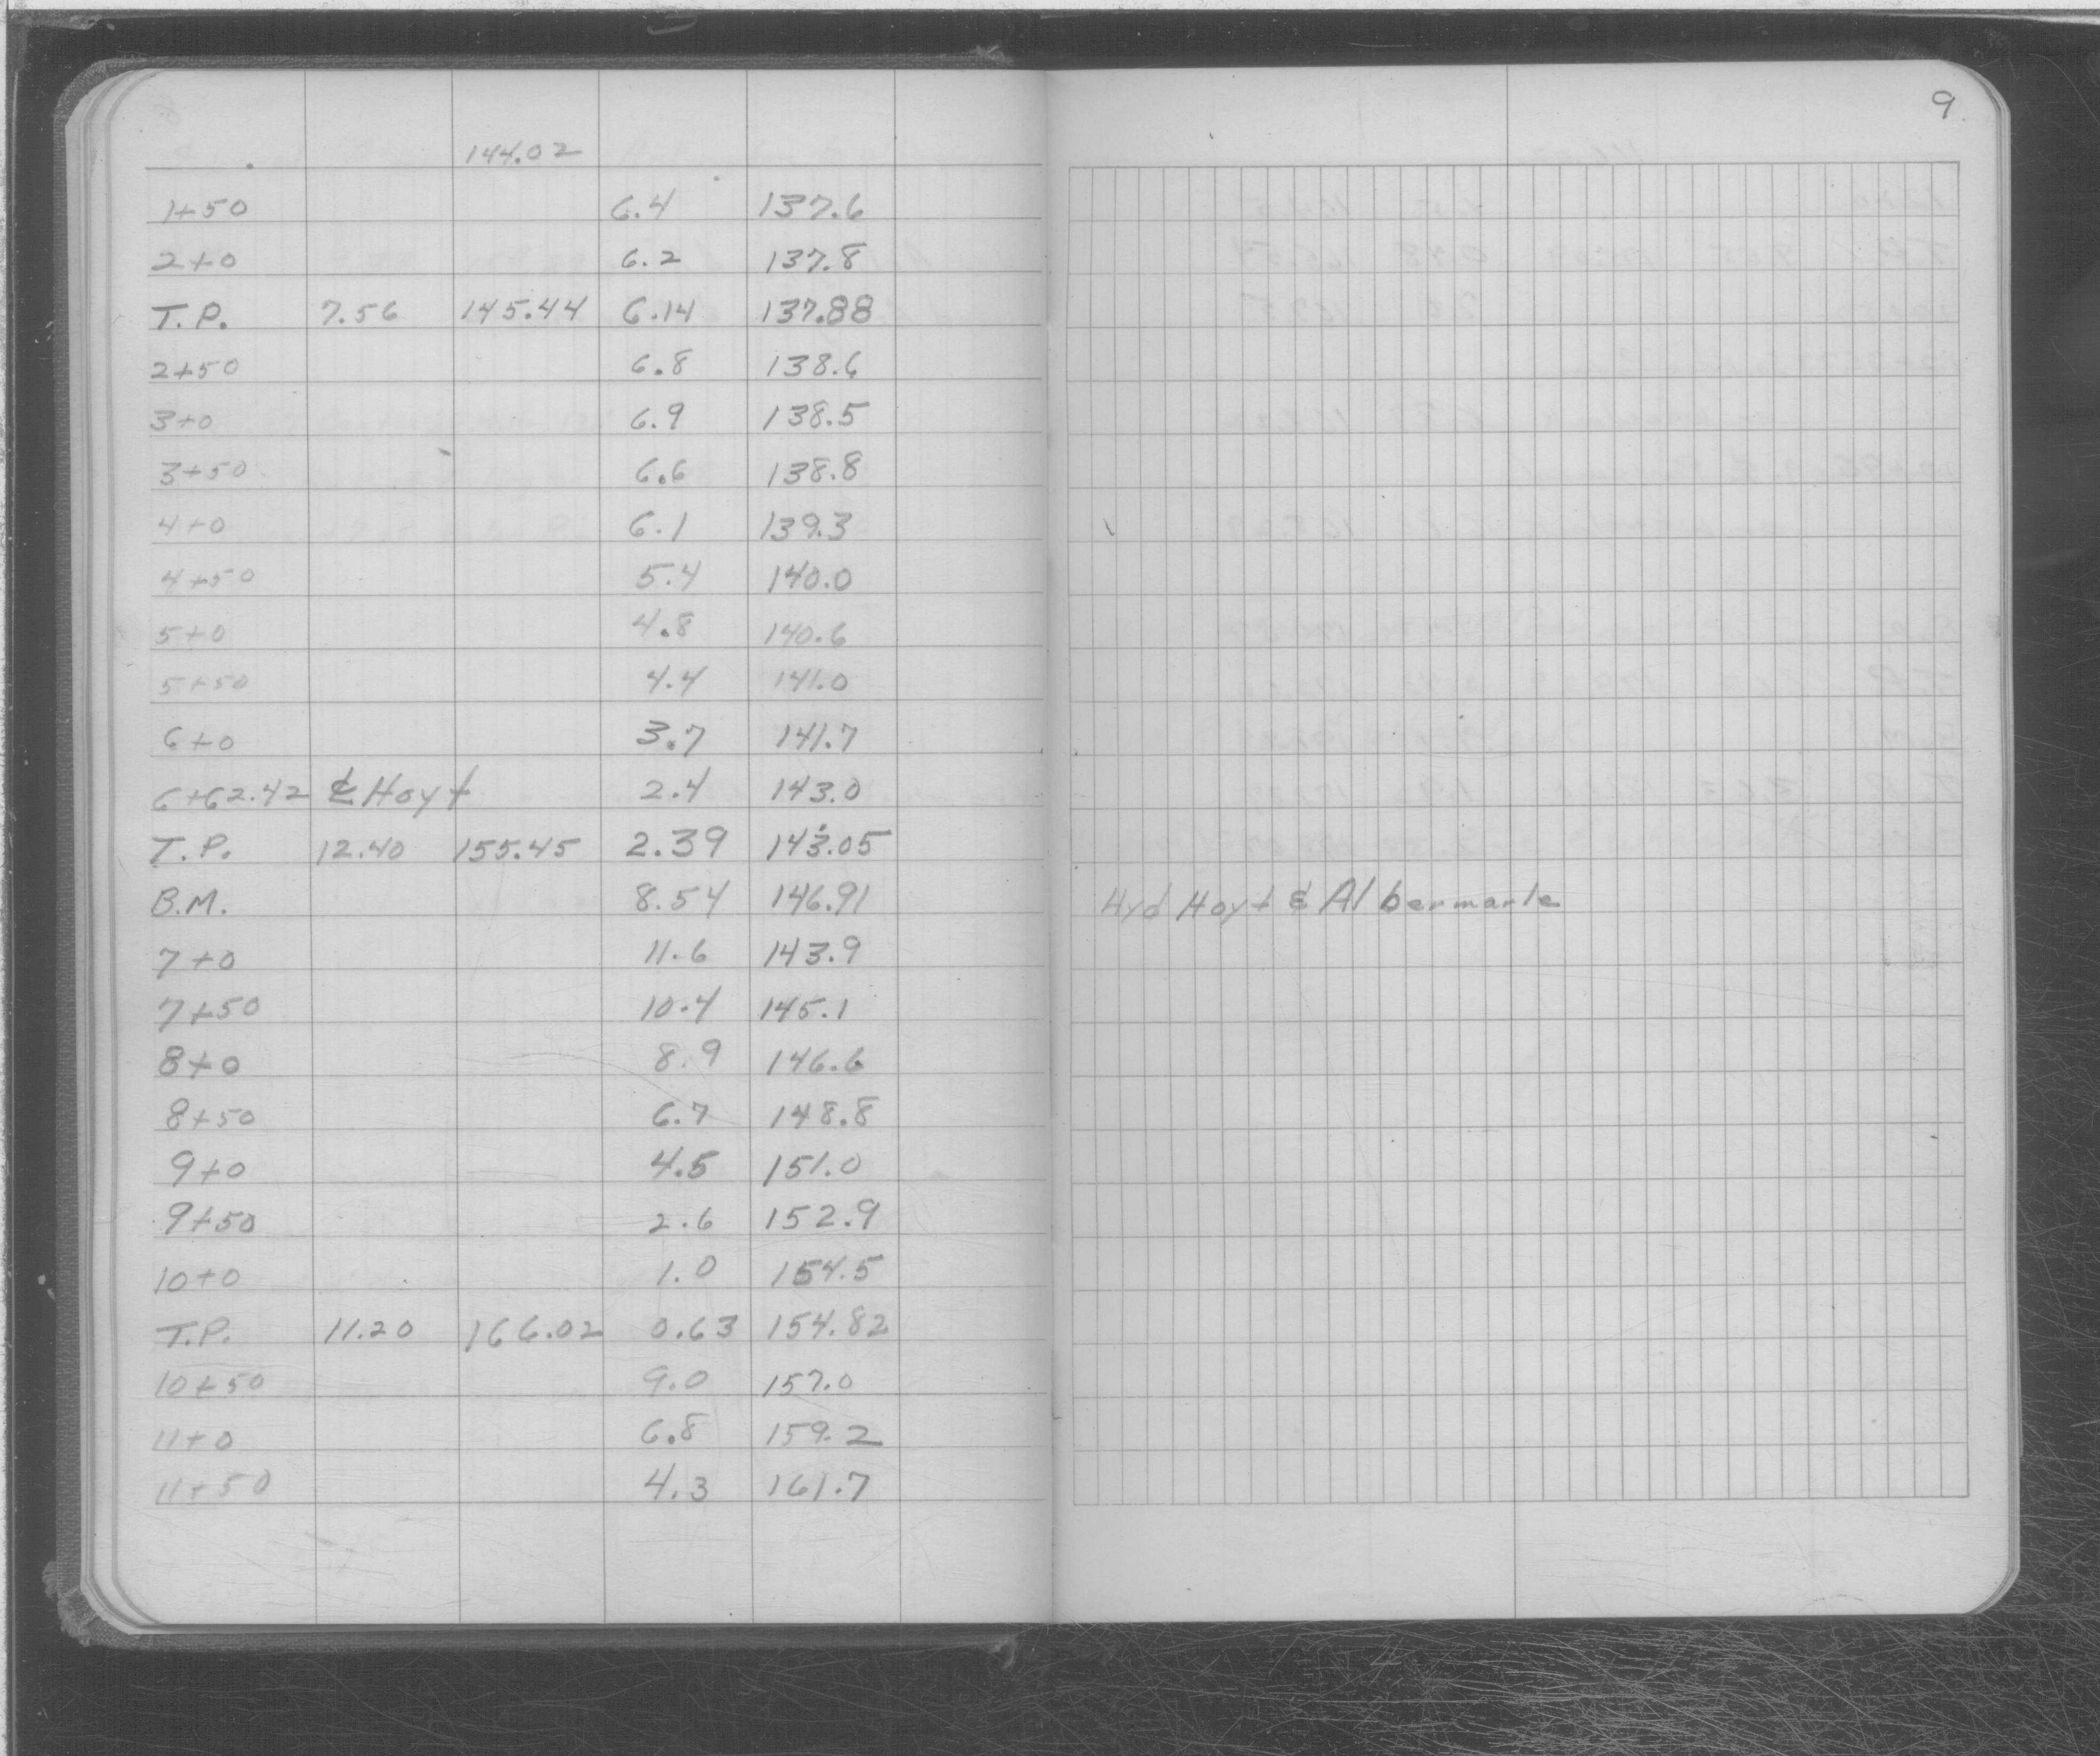 9
144.02
1+50 6.4 137.6
2+0 6.2 137.8
T.P. 7.56 145.44 6.14 137.88
2+50 6.8 138.6
3+0 6.9 138.5
3+50 6.6 138.8
4+0 6.1 139.3
4+50 5.4 140.0
5+0 4.8 140.6
5+50 4.4 141.0
6+0 3.7 141.7
6+62.42 ℄ Hoyt 2.4 143.0
T.P. 12.40 155.45 2.39 143.05
B.M. 8.54 146.91 Hyd Hoyt & Albermarle
7+0 11.6 143.9
7+50 10.4 145.1
8+0 8.9 146.6
8+50 6.7 148.8
9+0 4.5 151.0
9+50 2.6 152.9
10+0 1.0 154.5
T.P. 11.20 166.02 0.63 154.82
10+50 9.0 157.0
11+0 6.8 159.2
11+50 4.3 161.7